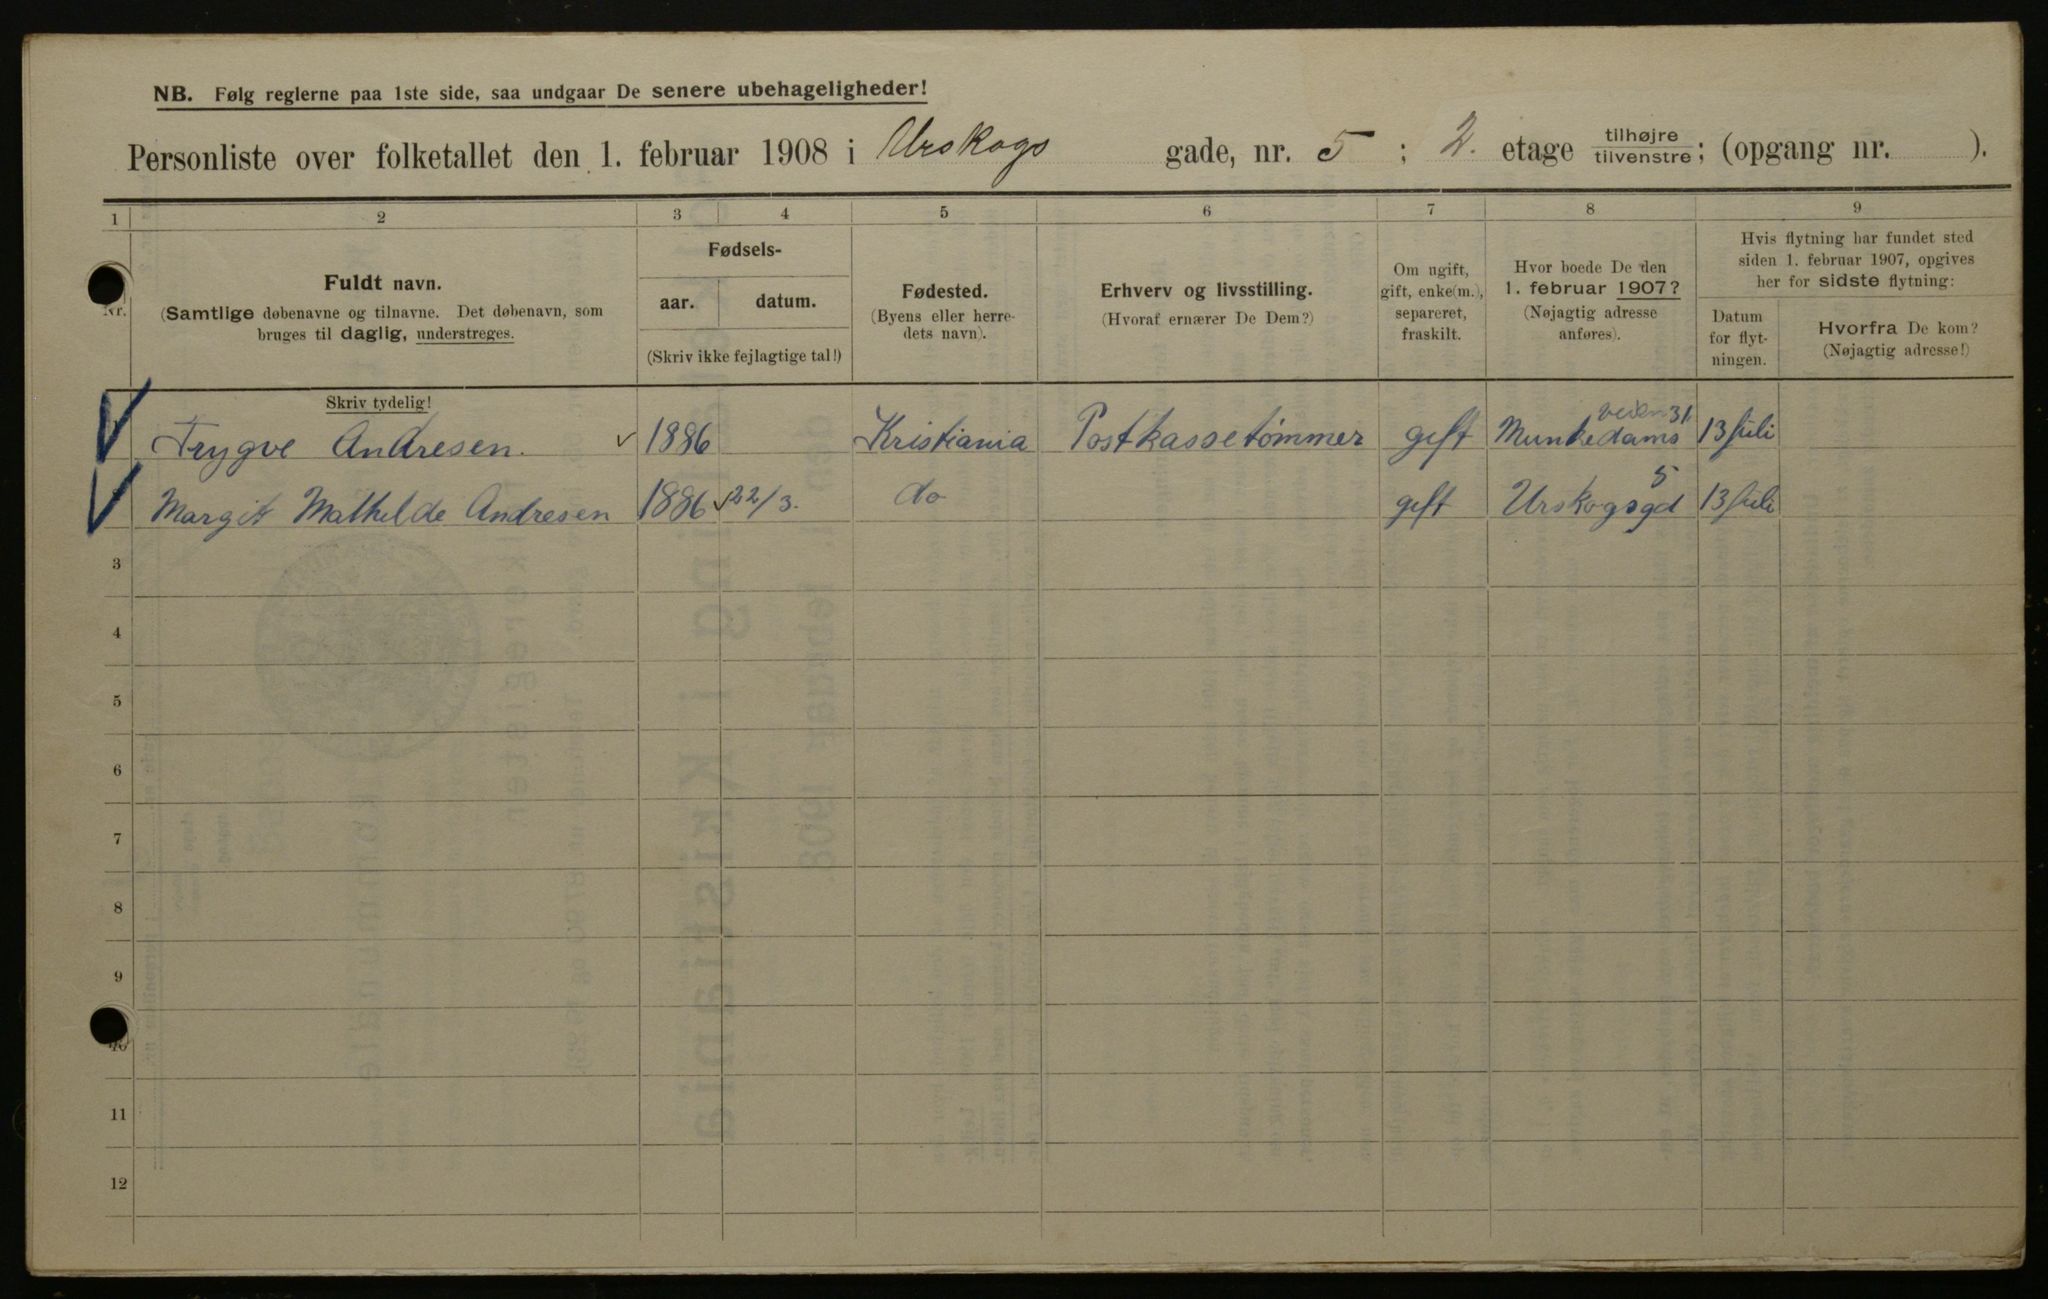 NB. Følg reglerne paa 1ste side, saa undgaar De senere ubehageligheder!
Personliste over folketallet den 1. februar 1908 i Urskogs gade, nr. 5 ; 2. etage tilhøjre/tilvenstre; (opgang nr. ).
1 2 3 4 5 6 7 8 9
Nr.
Fuldt navn.
(Samtlige døbenavne og tilnavne. Det døbenavn, som
bruges til daglig, understreges.
Skriv tydelig!
Fødsels-
aar. datum.
(Skriv ikke fejlagtige tal!)
Fødested.
(Byens eller herre-
dets navn).
Erhverv og livsstilling.
(Hvoraf ernærer De Dem?)
Om ugift,
gift, enke(m.),
separeret,
fraskilt.
Hvor boede De den
1. februar 1907?
(Nøjagtig adresse
anføres).
Hvis flytning har fundet sted
siden 1. februar 1907, opgives
her for sidste flytning:
Datum
for flyt-
ningen.
Hvorfra De kom?
(Nøjagtig adresse!)
Trygve Andresen. 1886 Kristiania Postkassetømmer gift Munkedamsveien 31 13 Juli
Margit Mathilde Andresen 1886 22/3. do gift Urskogsgd 5 13 Juli
3
4
5
6
7
8
9
10
11
12